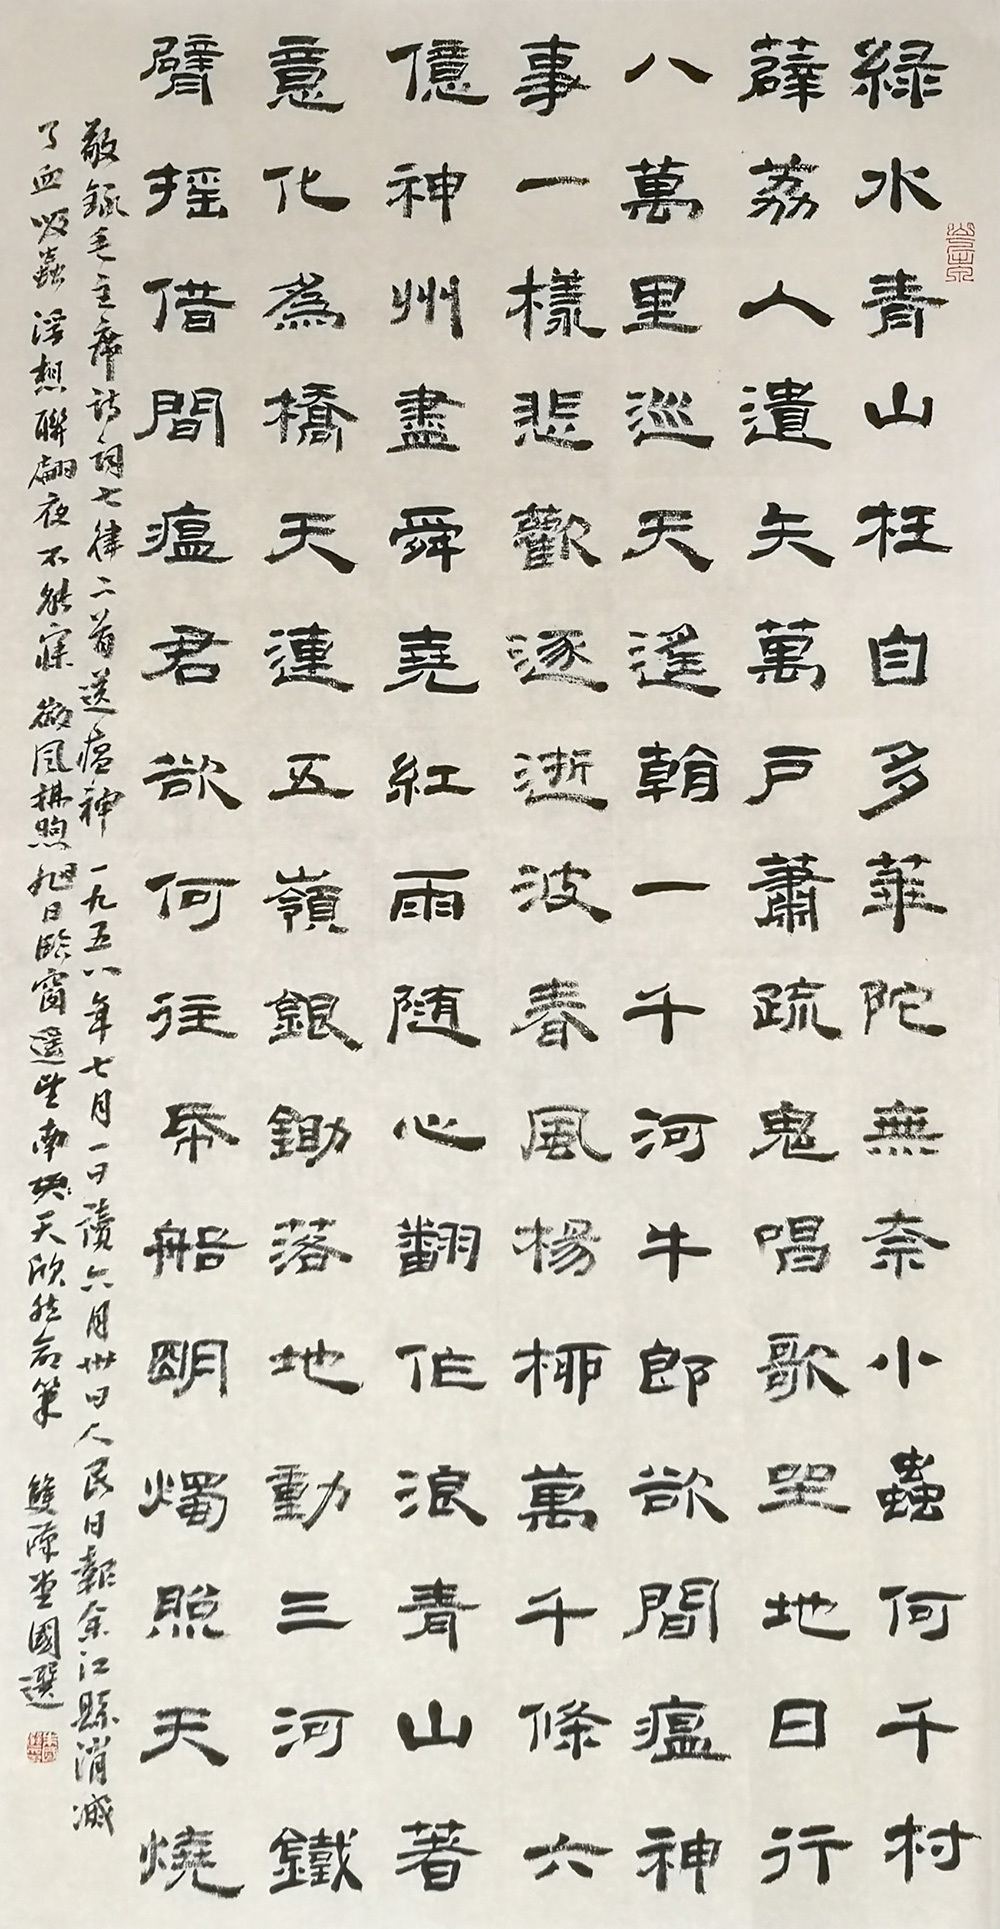 綠水青山枉自多華陀無奈小蟲何千村
薜荔人遺矢萬戶蕭疏鬼唱歌坐地日行
八萬里巡天遙看一千河牛郎欲問瘟神
事一樣悲歡逐逝波春風楊柳萬千條六
億神州盡舜堯紅雨隨心翻作浪青山著
意化為橋天連五嶺銀鋤落地動三河鐵
臂搖借問瘟君欲何往紙船明燭照天燒
敬錄毛主席詩詞七律二首送瘟神 一九五八年七月一日讀六月卅日人民日報余江縣消滅
了血吸蟲 浮想聯翩夜不能寐 微風拂煦旭日臨窗遙望南天欣然命筆 雙堂國選